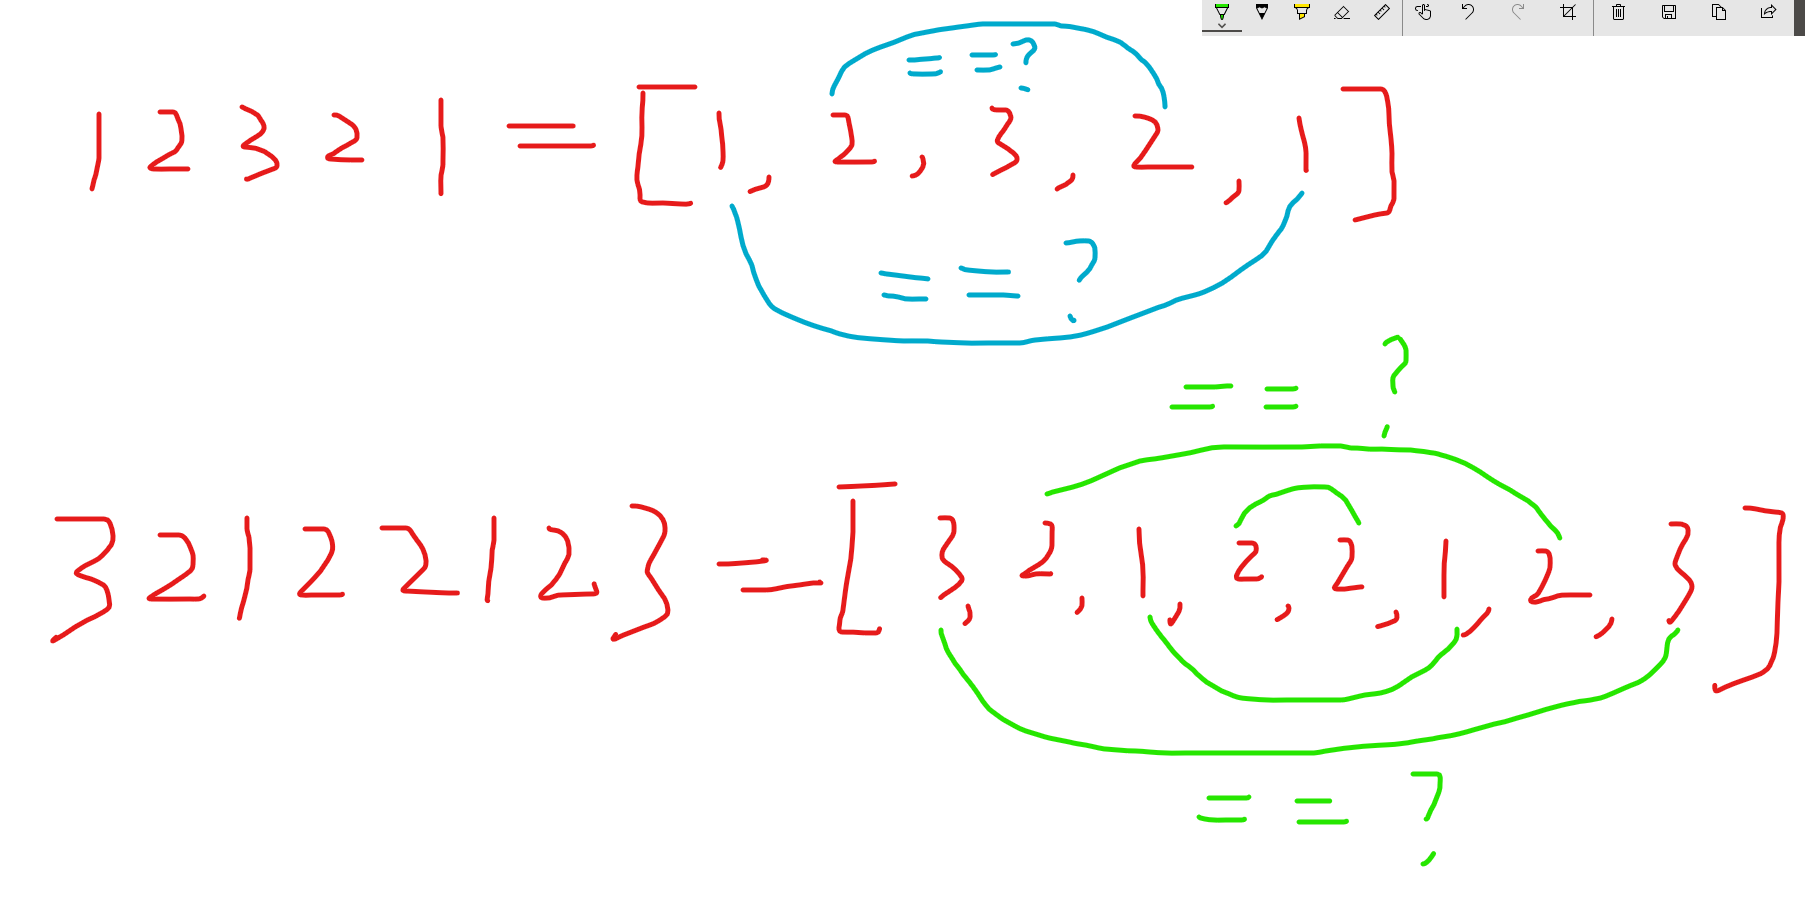 = = ?
1 2 3 2 1 = [1, 2, 3, 2, 1]
= = ?
= = ?
3 2 1 2 2 1 2 3 = [3, 2, 1, 2, 2, 1, 2, 3]
= = ?